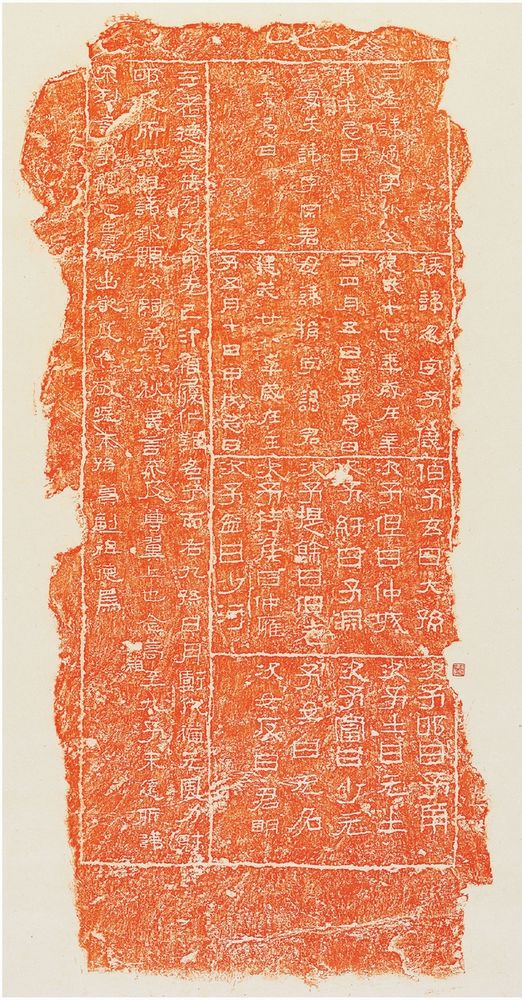 三老諱通字小父
庚午忌日
祖母失諱字宗君
癸未忌日
掾諱忽字子儀
建武十七年歲在辛
丑四月五日辛卯忌日
母諱捐字謁君
建武廿八年歲在壬
子五月十日甲戌忌日
伯子玄曰大孫
次子但曰仲城
次子紆曰子淵
次子提餘曰伯老
次子持侯曰仲雍
次子盈曰少河
次子邯曰子南
次子士曰元士
次子富曰少元
子女曰无名
次女反曰君明
三老德業赫烈克命先己汁稽履仁難名兮而右九孫日月虧代猶元風力射
邯及所識祖諱欽顯後嗣蓋春秋義言不及尊翼上也念高祖至九子未遠所諱
不列言事觸忌貴所出嚴及敬曉末孫冀副祖德焉